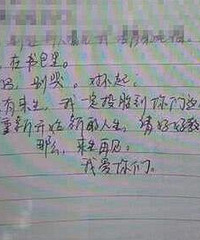 在书包里。
妈，别哭。对不起。
有来生，我一定投胎到你们这
重新开始新的人生，请好好教
那么，来生再见。
我爱你们。